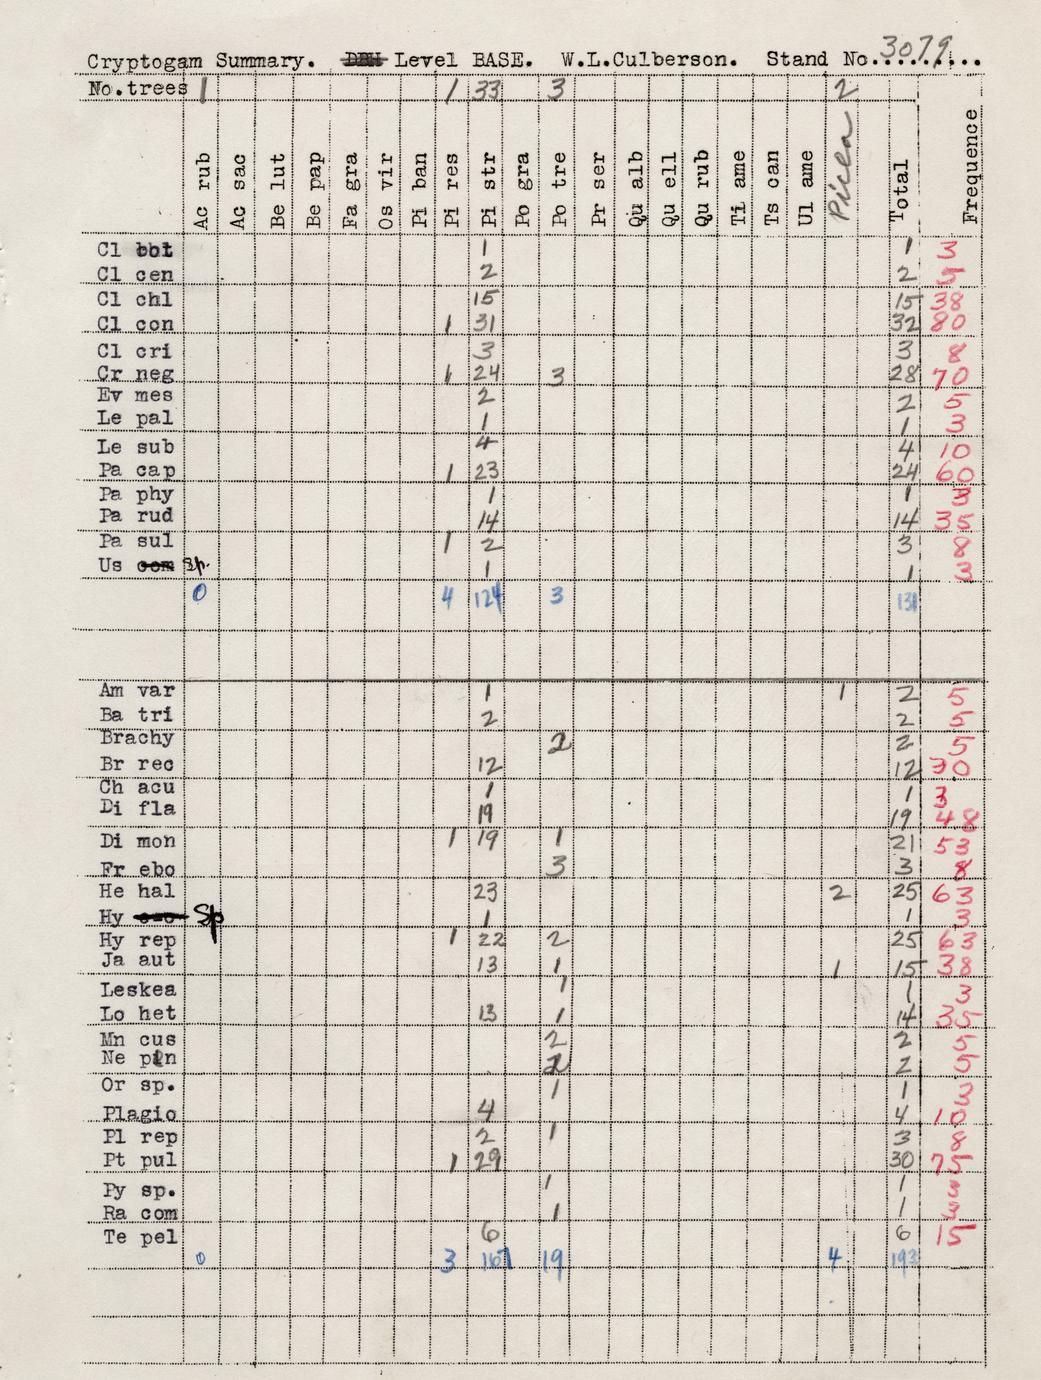 Cryptogam Summary. DBH Level BASE. W.L.Culberson. Stand No.3079...
No.trees 1 1 33 3 2
Ac rub Ac sac Be lut Be pap Fa gra Os vir Pi ban Pi res Pi str Po gra Po tre Pr ser Qu alb Qu ell Qu rub Ti ame Ts can Ul ame Picea Total Frequence
Cl bot 1 1 3
Cl cen 2 2 5
Cl chl 15 15 38
Cl con 1 31 32 80
Cl cri 3 3 8
Cr neg 1 24 3 28 70
Ev mes 2 2 5
Le pal 1 1 3
Le sub 4 4 10
Pa cap 1 23 24 60
Pa phy 1 1 3
Pa rud 14 14 35
Pa sul 1 2 3 8
Us com sp. 1 1 3
0 4 124 3 131
Am var 1 1 2 5
Ba tri 2 2 5
Brachy 2 2 5
Br rec 12 12 30
Ch acu 1 1 3
Di fla 19 19 48
Di mon 1 19 1 21 53
Fr ebo 3 3 8
He hal 23 2 25 63
Hy Sp 1 1 3
Hy rep 1 22 2 25 63
Ja aut 13 1 1 15 38
Leskea 1 1 3
Lo het 13 1 14 35
Mn cus 2 2 5
Ne pin 2 2 5
Or sp. 1 1 3
Plagio 4 4 10
Pl rep 2 1 3 8
Pt pul 1 29 30 75
Py sp. 1 1 3
Ra com 1 1 3
Te pel 6 6 15
0 3 167 19 4 193